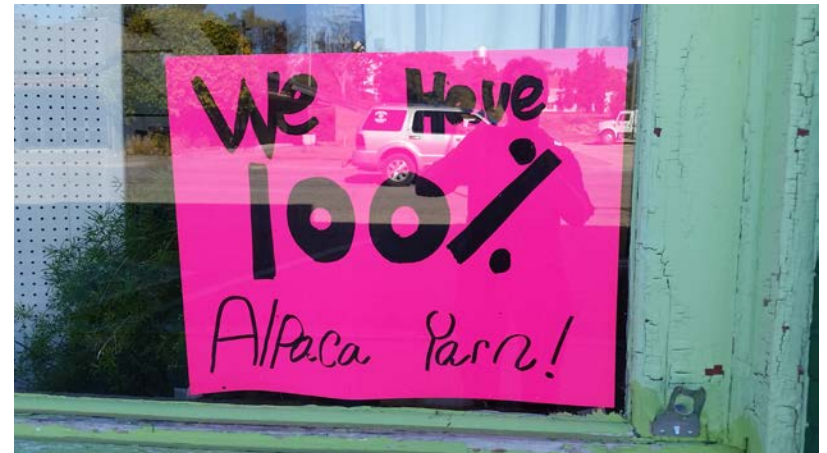 We Have
100%
Alpaca Yarn!